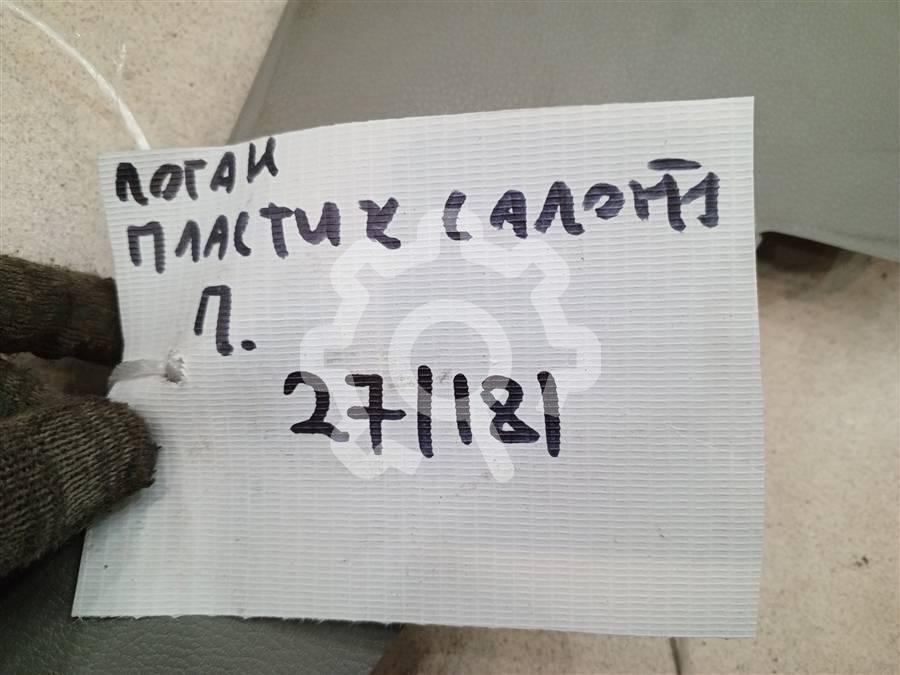 ЛОГАН
ПЛАСТИК САЛОНА
П.
27/181